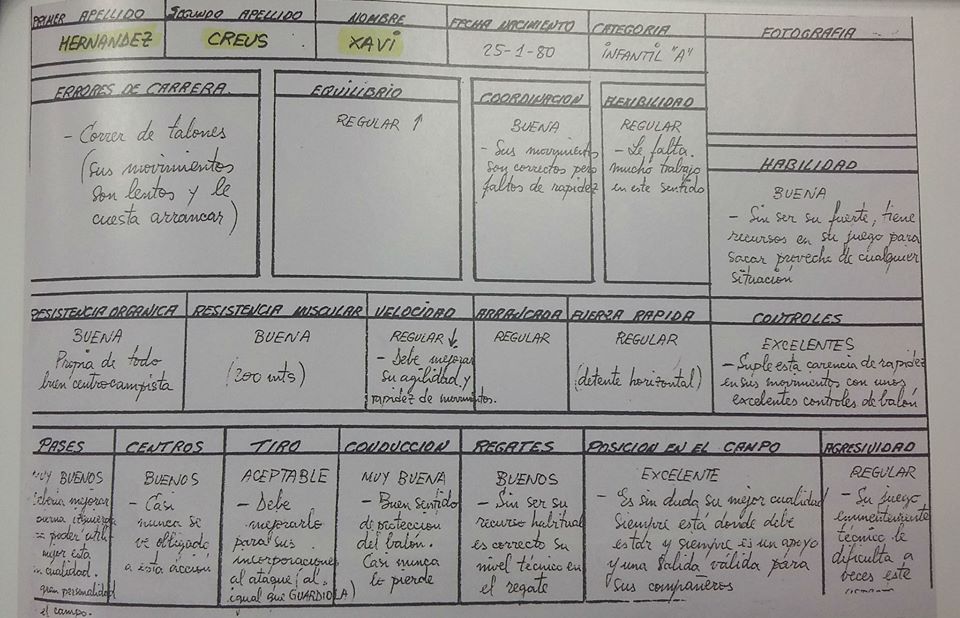 PRIMER APELLIDO
HERNANDEZ
SEGUNDO APELLIDO
CREUS
NOMBRE
XAVI
FECHA NACIMIENTO
25-1-80
CATEGORIA
INFANTIL "A"
FOTOGRAFIA
ERRORES DE CARRERA.
- Correr de talones
(sus movimientos
son lentos y le
cuesta arrancar)
EQUILIBRIO
REGULAR ↑
COORDINACION
BUENA
- Sus movimientos
son correctos pero
faltos de rapidez
FLEXIBILIDAD
REGULAR
- Le falta
mucho trabajo
en este sentido
HABILIDAD
BUENA
- Sin ser su fuerte, tiene
recursos en su juego para
sacar provecho de cualquier
situación
RESISTENCIA ORGANICA
BUENA
Propia de todo
buen centrocampista
RESISTENCIA MUSCULAR
BUENA
(200 mts)
VELOCIDAD
REGULAR ↓
- Debe mejorar
su agilidad y
rapidez de movimientos.
ARRANCADA
REGULAR
FUERZA RAPIDA
REGULAR
(detente horizontal)
CONTROLES
EXCELENTES
- Suple esta carencia de rapidez
en sus movimientos con unos
excelentes controles de balón
PASES
MUY BUENOS
mejorar
pierna izquierda
poder
mejor esta
cualidad.
gran personalidad
el campo.
CENTROS
BUENOS
- Casi
nunca se
ve obligado
a esta acción
TIRO
ACEPTABLE
- Debe
mejorarlo
para sus
incorporaciones
al ataque (al
igual que GUARDIOLA)
CONDUCCION
MUY BUENA
- Buen sentido
de protección
del balón.
Casi nunca
lo pierde
REGATES
BUENOS
- Sin ser su
recurso habitual
es correcto su
nivel técnico en
el regate
POSICION EN EL CAMPO
EXCELENTE
- Es sin duda su mejor cualidad
Siempre esta donde debe
estar y siempre es un apoyo
y una salida válida para
sus compañeros
AGRESIVIDAD
REGULAR
- Su juego
eminentemente
técnico le
dificulta a
veces este